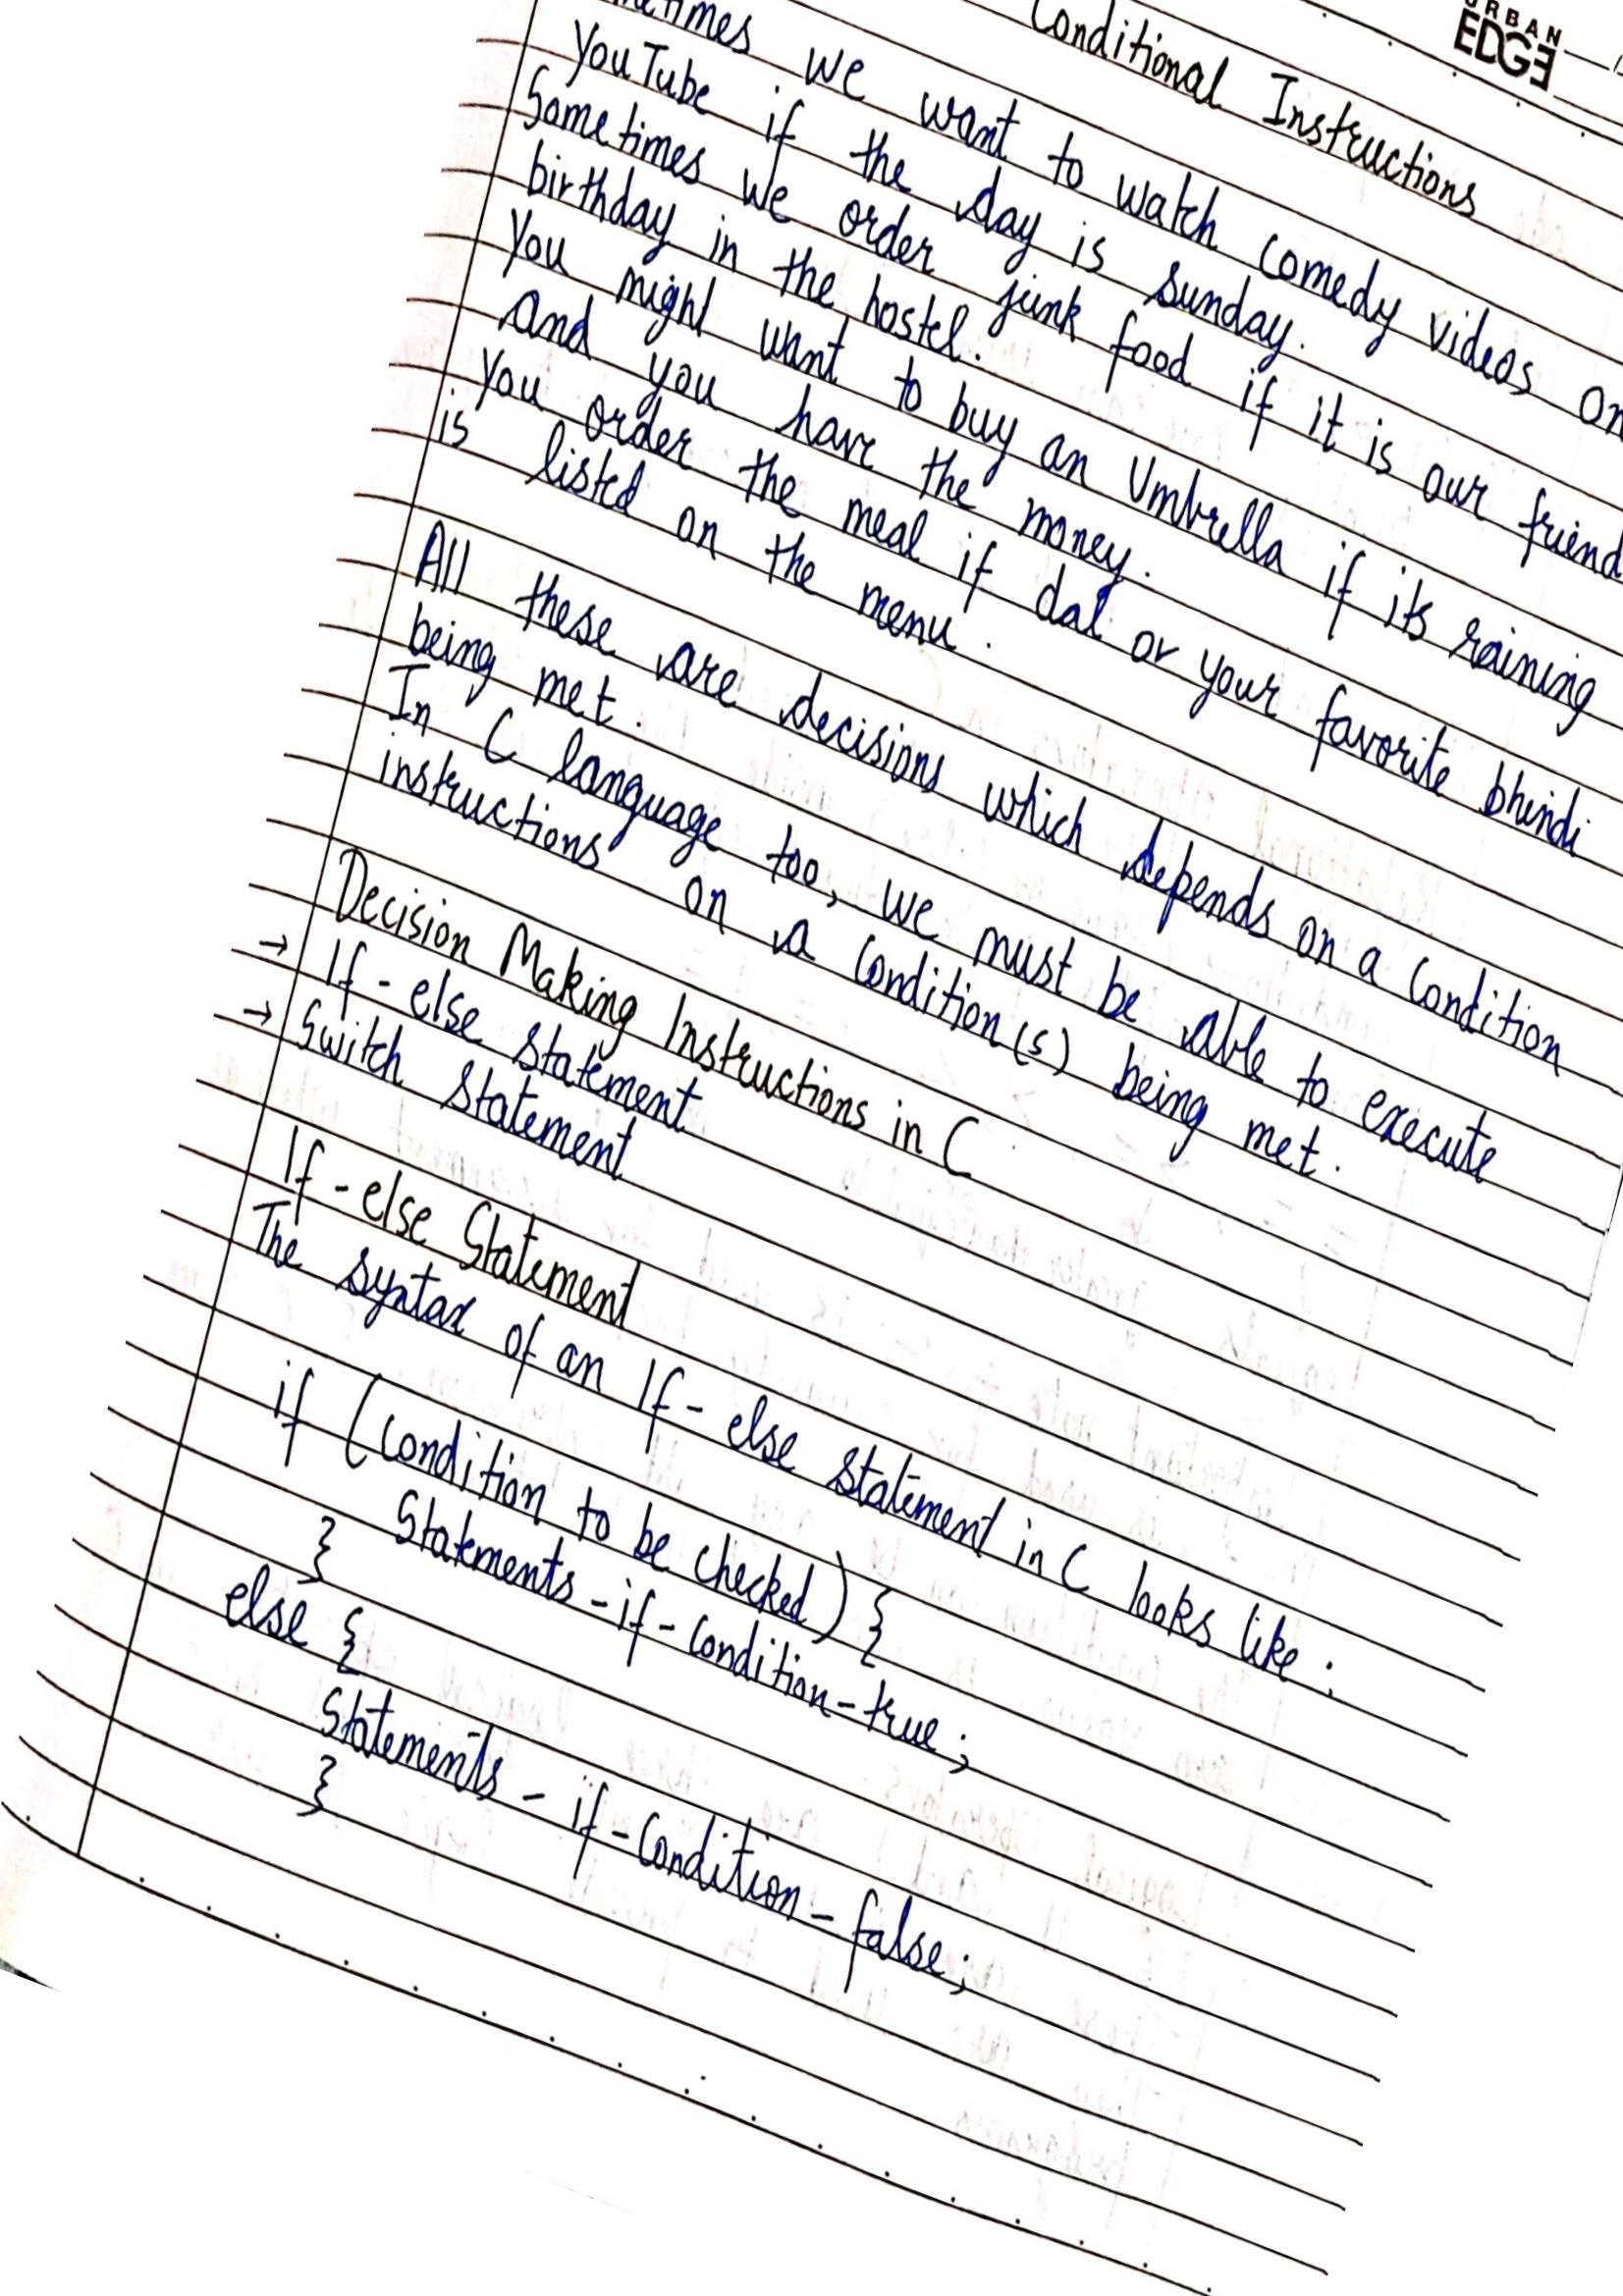 URBAN
EDGE
Conditional Instructions
we want to watch comedy videos on
YouTube if the day is Sunday.
Sometimes we order junk food if it is our friend
birthday in the hostel.
You might want to buy an Umbrella if its raining
and you have the money.
You order the meal if dal or your favorite bhindi
is listed on the menu.
All these are decisions which depends on a condition
being met.
In C language too, we must be able to execute
instructions on a condition(s) being met.
Decision Making Instructions in C
→ If-else statement
→ Switch statement
If-else Statement
The syntax of an If-else statement in C looks like:
if (condition to be checked) {
Statements-if-condition-true;
}
else {
Statements-if-condition-false;
}